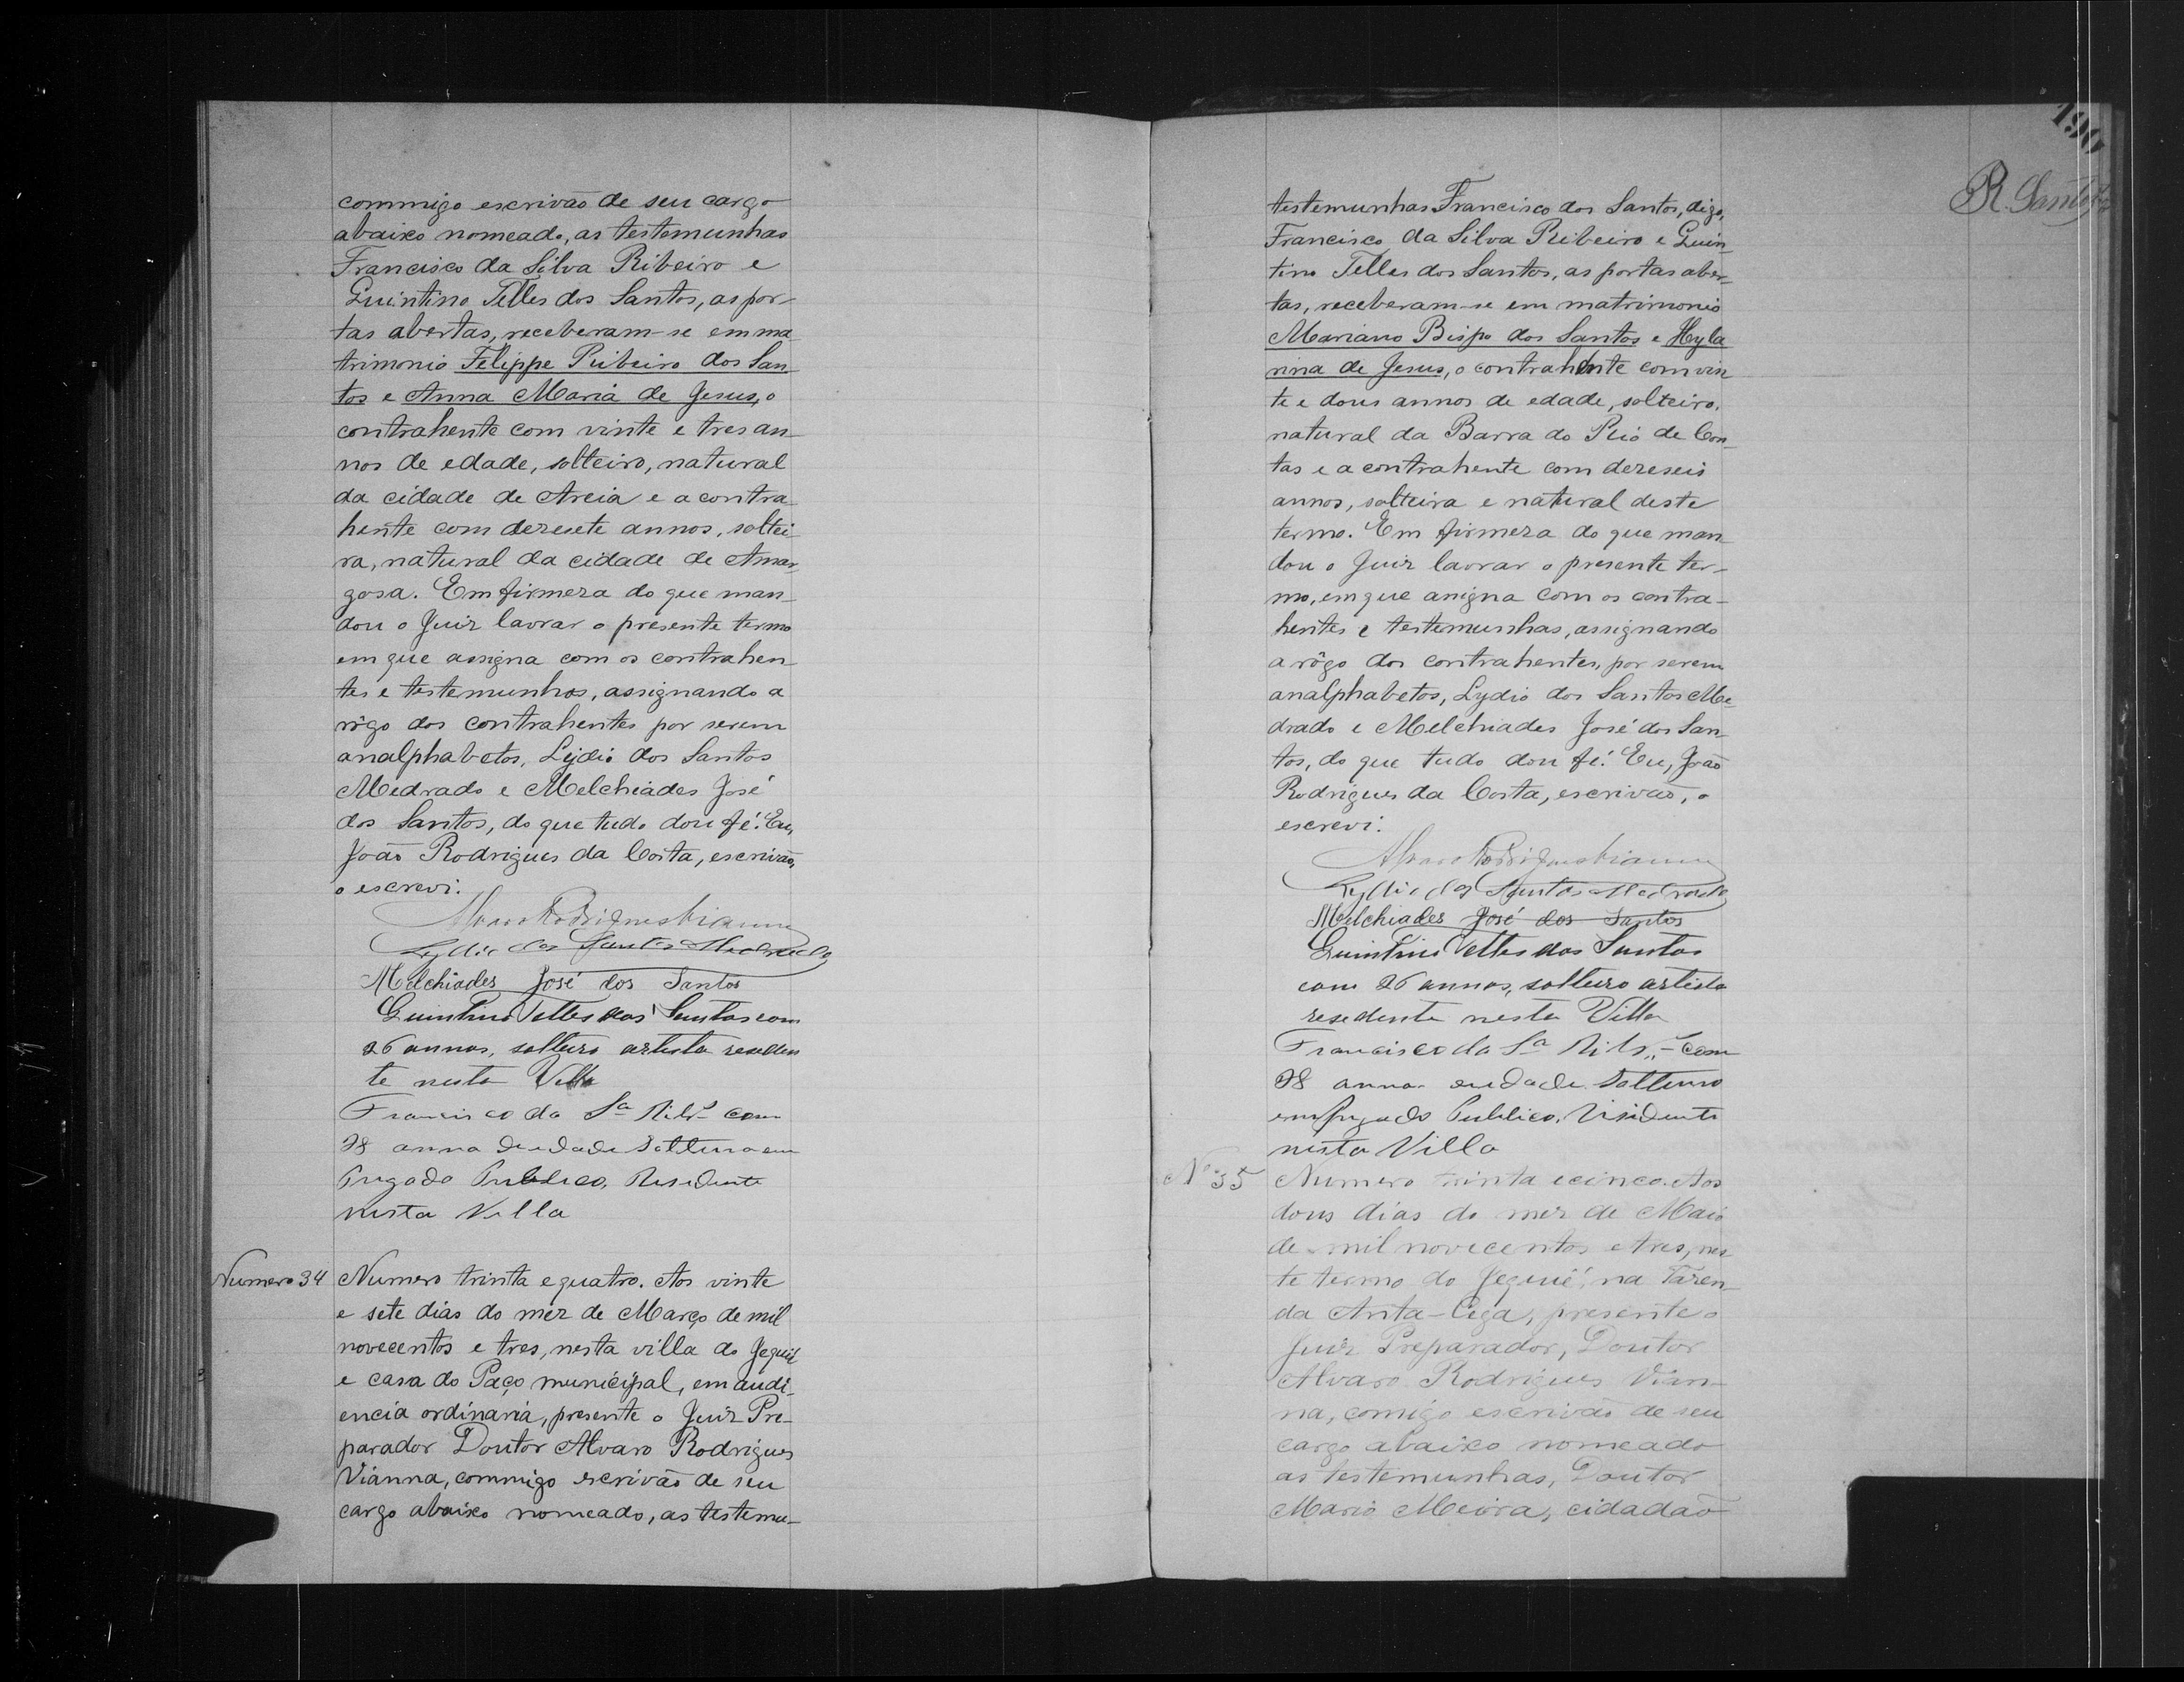 commigo escrivão de seu cargo
abaixo nomeado, as testemunhas
Francisco da Silva Ribeiro e
Quintino Telles dos Santos, as por-
tas abertas, receberam-se em ma
trimonio Felippe Ribeiro dos San
tos e Anna Maria de Jesus, o
contrahente com vinte e tres an-
nos de edade, solteiro, natural
da cidade de Areia e a contra-
hente com dezesete annos, soltei-
ra, natural da cidade de Amar-
gosa. Em firmeza do que man-
dou o Juiz lavrar o presente termo
em que assigna com os contrahen
tes e testemunhas, assignando a
rôgo dos contrahentes por serem
analphabetos, Lydio dos Santos
Medrado e Melchiades José
dos Santos, do que tudo dou fé. Eu,
João Rodrigues da Costa, escrivão,
o escrevi.
Alvaro Rodrigues Vianna
Lydio dos Santos Medrado
Melchiades José dos Santos
Quintino Telles dos Santos com
26 annos, solteiro artista reseden
te nesta Villa
Francisco da Sª Ribº com
28 anna deedade Solteiro em
pregado Publico, Residente
nesta Villa
Numero 34 Numero trinta e quatro. Aos vinte
e sete dias do mez de Março de mil
novecentos e tres, nesta villa do Jequié
e casa do Paço municipal, em audi-
encia ordinaria, presente o Juiz Pre-
parador Doutor Alvaro Rodrigues
Vianna, commigo escrivão de seu
cargo abaixo nomeado, as testemu-
190
R. Santos
testemunhas Francisco dos Santos, digo,
Francisco da Silva Ribeiro e Quin-
tino Telles dos Santos, as portas aber-
tas, receberam-se em matrimonio
Mariano Bispo dos Santos e Hyla
rina de Jesus, o contrahente com vin
te e dous annos de edade, solteiro,
natural da Barra do Rio de Con-
tas e a contrahente com dezeseis
annos, solteira e natural deste
termo. Em firmeza do que man
dou o Juiz lavrar o presente ter-
mo, em que assigna com os contra-
hentes e testemunhas, assignando
a rôgo dos contrahentes, por serem
analphabetos, Lydio dos Santos Me-
drado e Melchiades José dos San
tos, do que tudo dou fé. Eu, João
Rodrigues da Costa, escrivão, o
escrevi.
Alvaro Rodrigues Vianna
Lydio dos Santos Medrado
Melchiades José dos Santos
Quintino Telles dos Santos
com 26 annos, solteiro artista
resedente nesta Villa
Francisco da Sª Ribº com
28 anna deedade Solteiro
empregado Publico, Residente
nesta Villa
Nº 35 Numero trinta e cinco. Aos
dous dias do mez de Maio
de mil novecentos e tres, nes
te termo do Jequié, na Fazen-
da Anta-Cega, presente o
Juiz Preparador, Doutor
Alvaro Rodrigues Vian-
na, comigo escrivão de seu
cargo abaixo nomeado
as testemunhas, Doutor
Mario Meira, cidadão